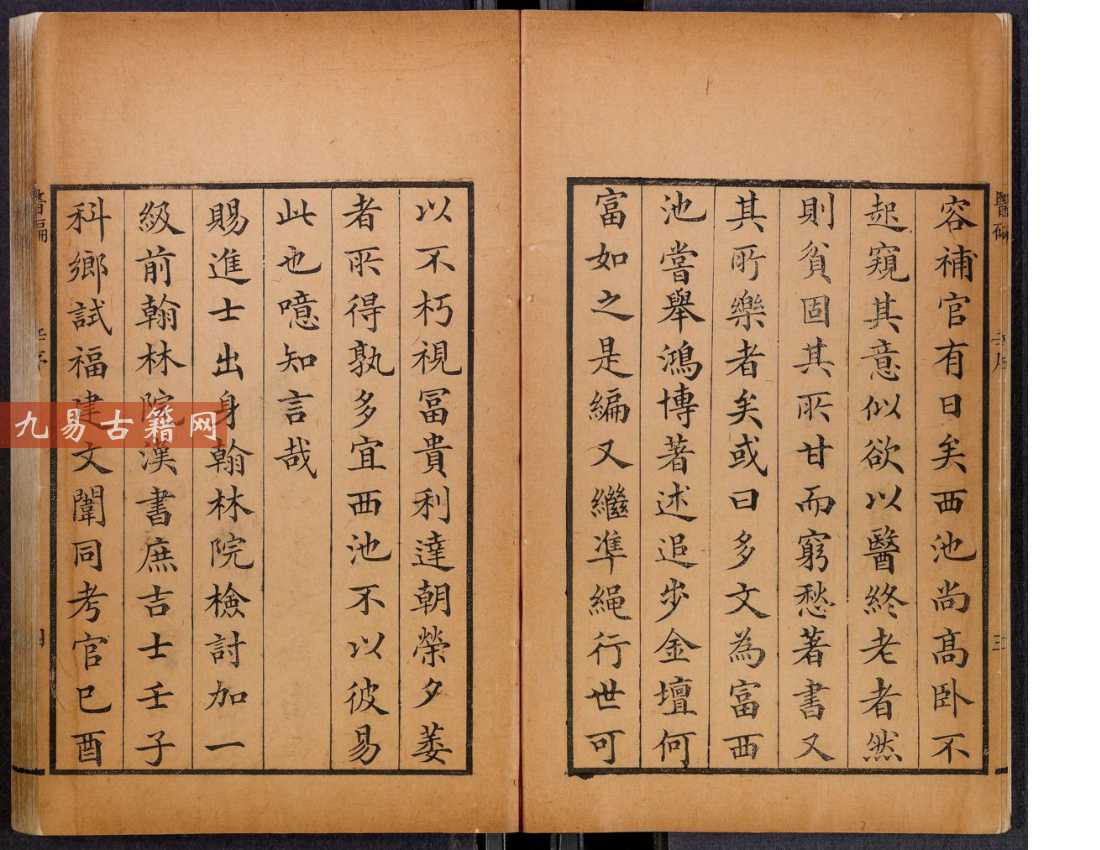 容補官有日矣西池尚高卧不
起窺其意似欲以醫終老者然
則貧固其所甘而窮愁著書又
其所樂者矣或曰多文為富西
池嘗舉鴻博著述追步金壇何
富如之是編又繼準繩行世可
以不朽視富貴利達朝榮夕萎
者所得孰多宜西池不以彼易
此也噫知言哉
賜進士出身翰林院檢討加一
級前翰林院漢書庶吉士壬子
科鄉試福建文闈同考官已酉
九易古籍网